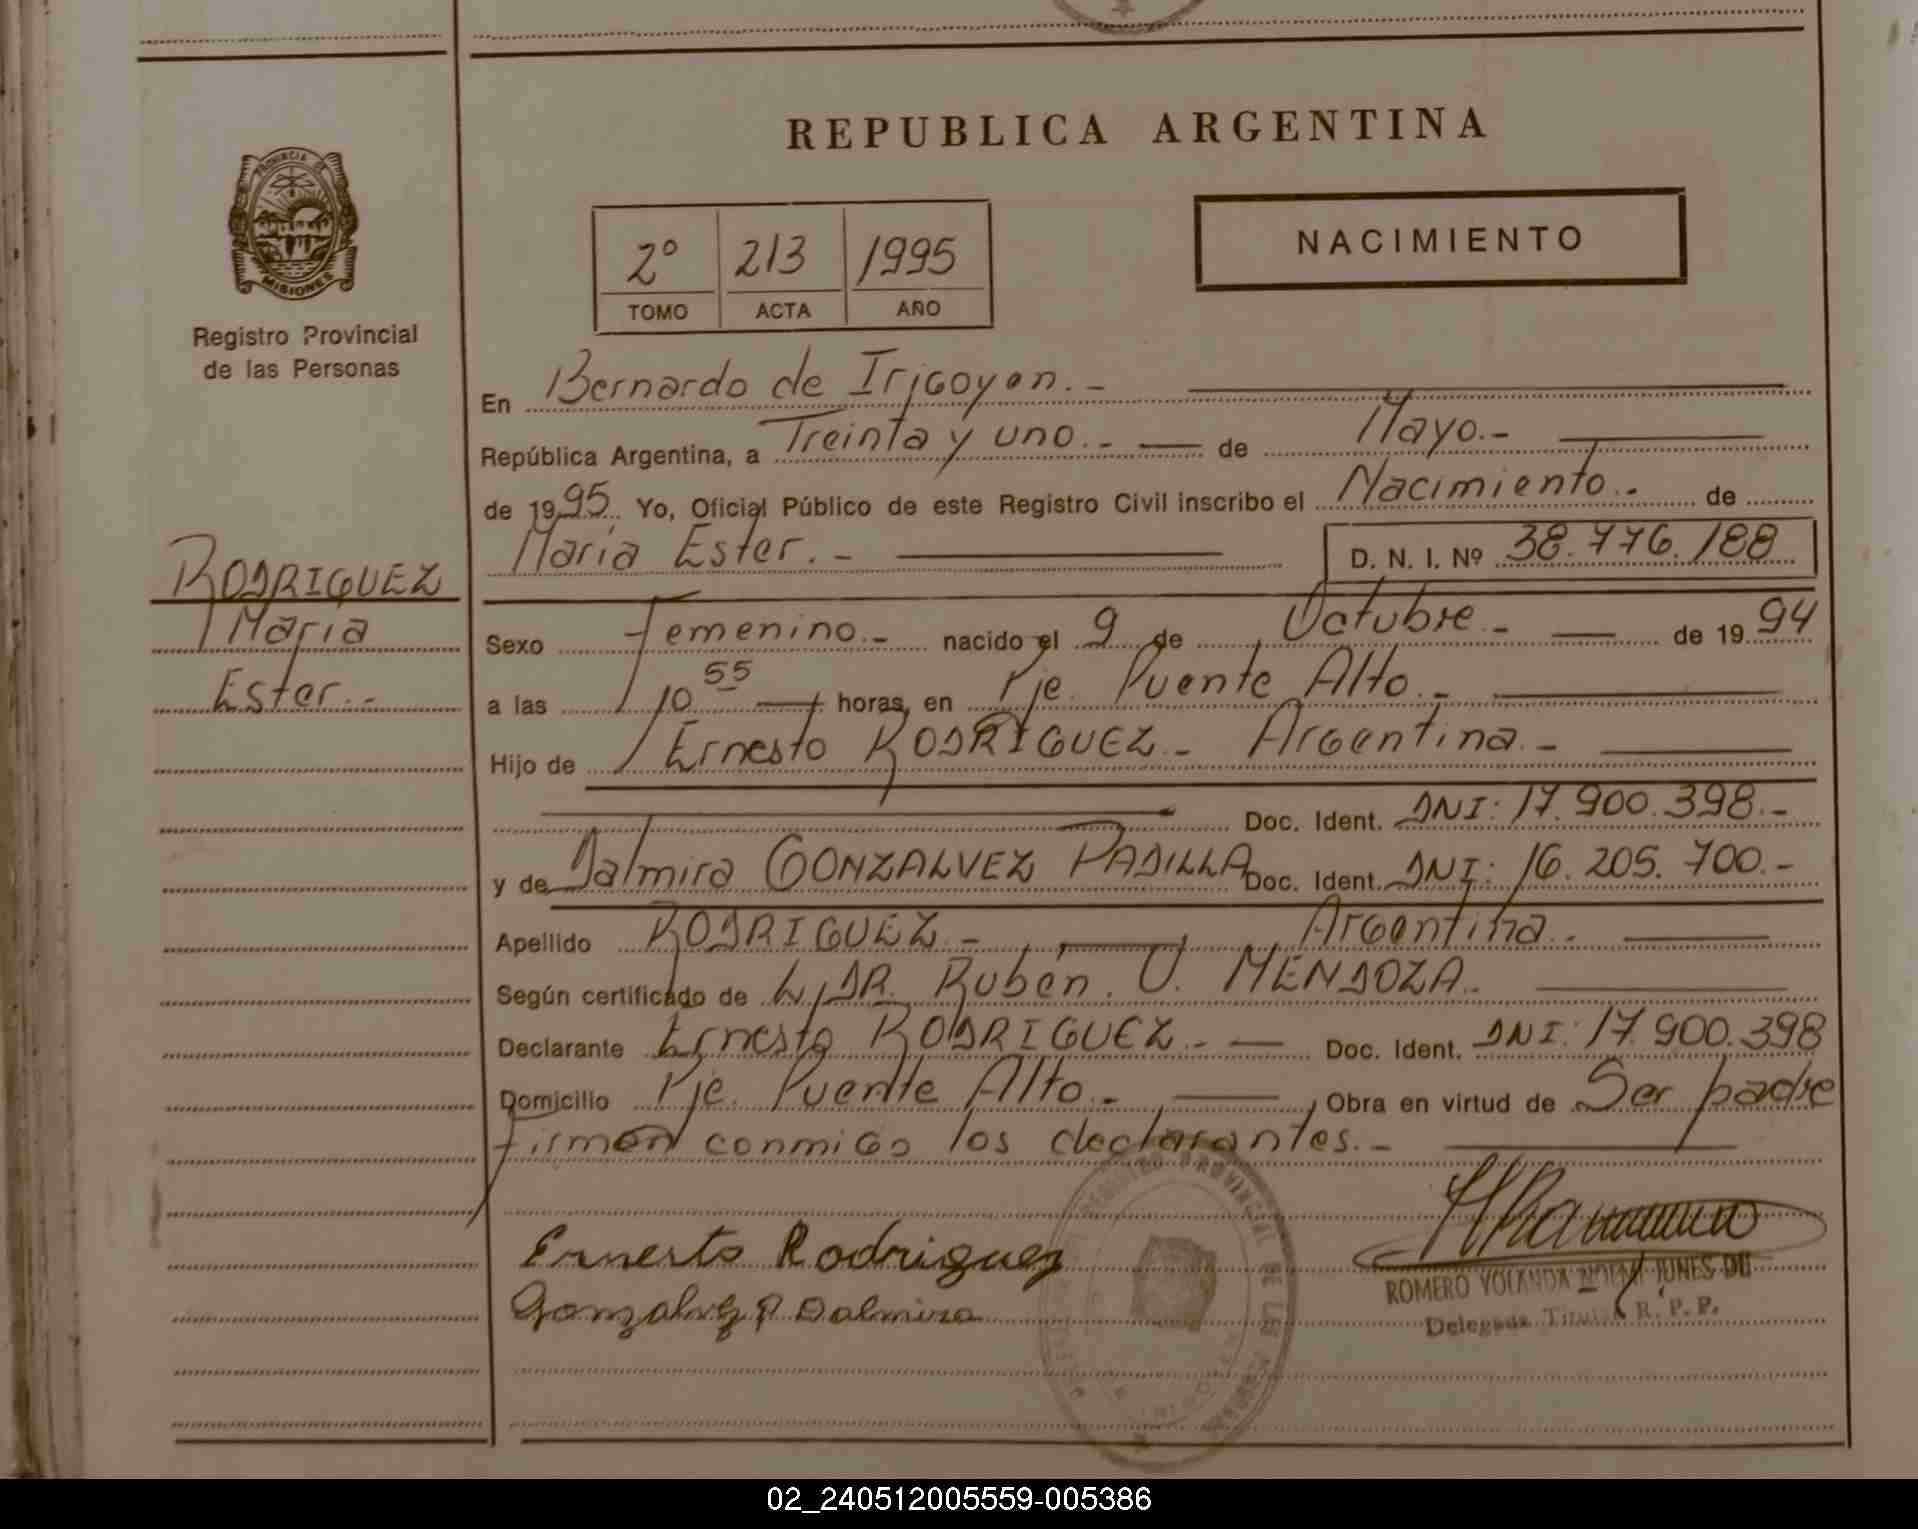 REPUBLICA ARGENTINA
PROVINCIA DE
MISIONES
Registro Provincial
de las Personas
2º 213 1995
TOMO ACTA AÑO
NACIMIENTO
En Bernardo de Irigoyen.-
República Argentina, a Treinta y uno.- de Mayo.-
de 1995. Yo, Oficial Público de este Registro Civil inscribo el Nacimiento.- de
María Ester.- D. N. I. Nº 38.776.188
RODRIGUEZ
María
Ester.-
Sexo Femenino.- nacido el 9 de Octubre.- de 1994
a las 10 55 horas, en Pje. Puente Alto.-
Hijo de Ernesto RODRIGUEZ.- Argentina.-
Doc. Ident. DNI: 17.900.398.-
y de Dalmira GONZALVEZ PADILLA Doc. Ident. DNI: 16.205.700.-
Apellido RODRIGUEZ.- Argentina.-
Según certificado de DR. Rubén. MENDOZA.
Declarante Ernesto RODRIGUEZ.- Doc. Ident. DNI: 17.900.398
Domicilio Pje. Puente Alto.- Obra en virtud de Ser padre
firman conmigo los declarantes.-
Ernesto Rodriguez
Gonzalvez P. Dalmira
ROMERO YOLANDA NOEMI
Delegada Titular R. P. P.
REGISTRO PROVINCIAL DE LAS PERSONAS
02_240512005559-005386